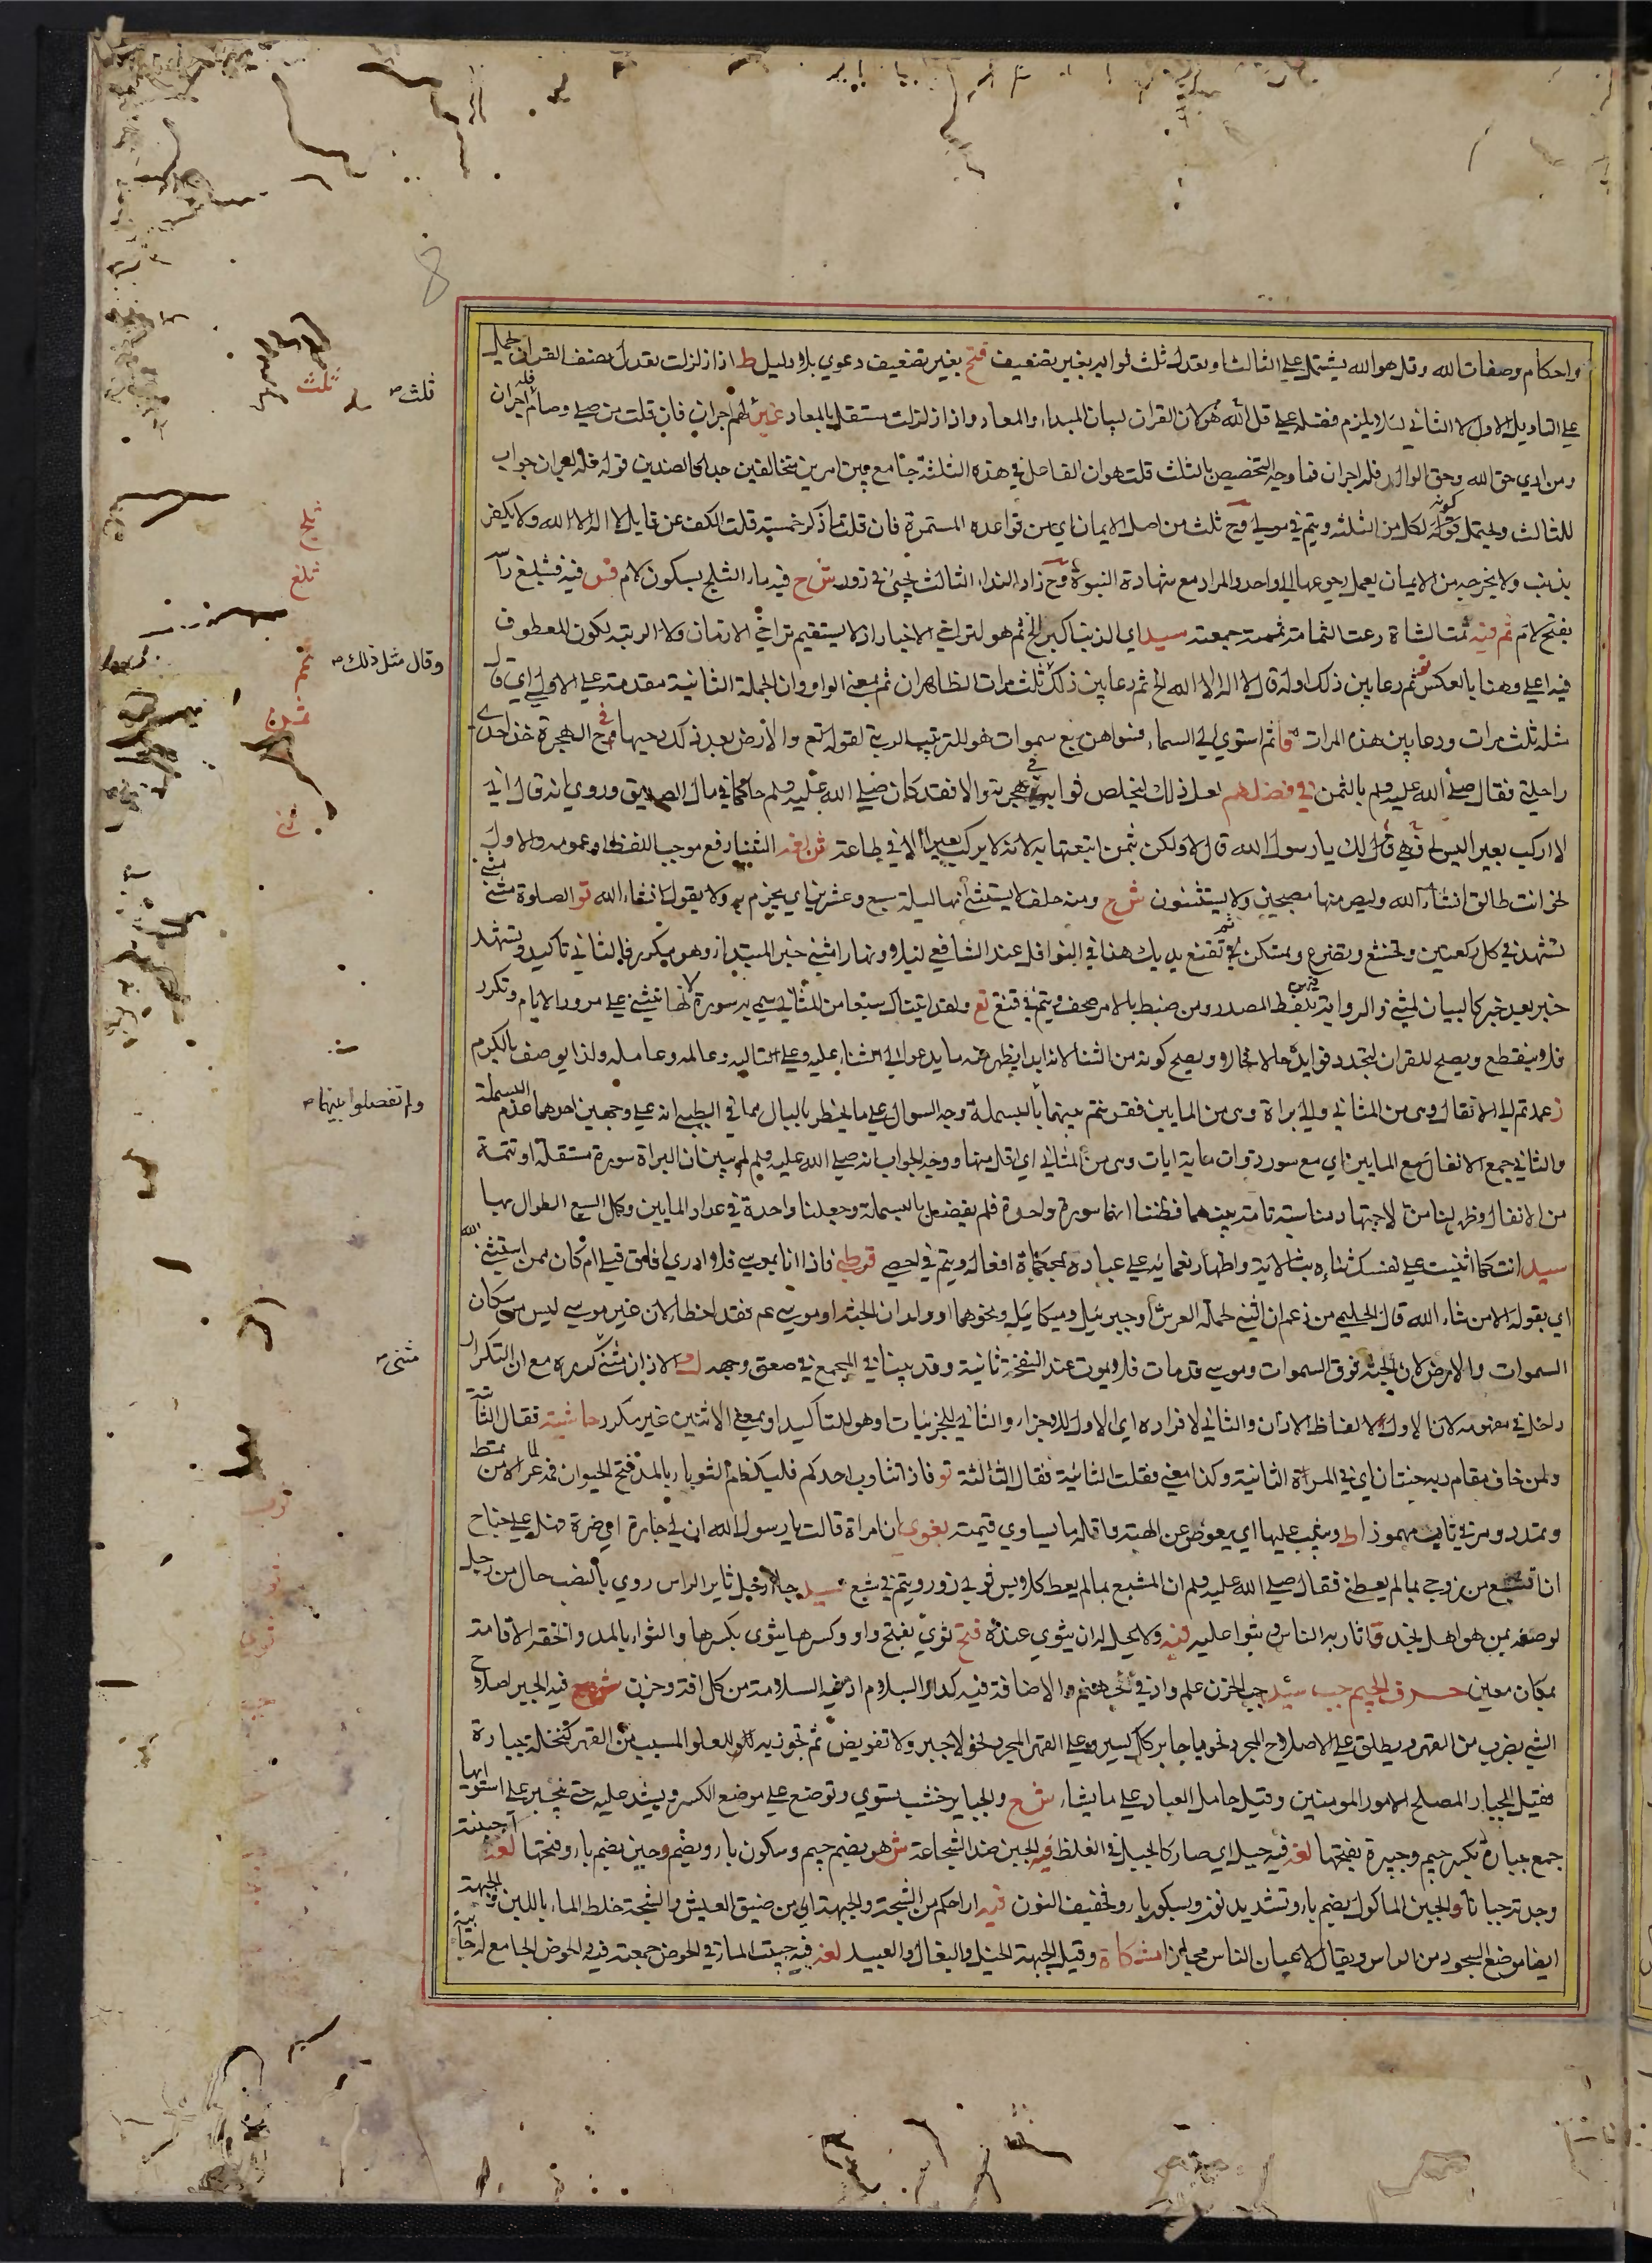 واحكام وصفات الله وقل هو الله يشتمل على الثالث او تعدل ثلث ثوابه بغير تضعيف فتح بغير تضعيف دعوى بلا دليل ط اذا زلزلت تعدل نصف القران لعله
على التاويل الاول لا الثاني لئلا يلزم فضله على قل الله هو لان القران لبيان المبداء والمعاد واذا زلزلت مستقل بالمعاد غير لهم اجران فان قلت من صلى وصام فله اجران
ومن ادى حق الله وحق الوالد فله اجران فما وجه التخصيص بالثلث قلت هو ان الفاعل في هذه الثلثة جامع بين امرين متخالفين جدا كالضدين قوله فله اجران جواب
للثالث ويحتمل كونه لكل من الثلثة ويتم في مولى وح ثلث من اصل الايمان اي من قواعده المستمرة فان قلت ما ذكر خمسة قلت الكف عن قايل لا اله الا الله ولا يكفر
بذنب ولا يخرجه من الايمان بعمل رجوعها الى واحد والمراد مع شهادة النبوة وح زاد النداء الثالث يجئ في زور ش ح فيه ماء الثلج بسكون لام قس فيه فيثلغ راسه
بفتح لام ثم فيه ثمت الشاة رعت الثمامة ثممته جمعته سيد اي الذنب اكبر الخ ثم هو لتراخي الاخبار اذ لا يستقيم تراخي الازمان ولا الرتبة لكون المعطوف
فيه اعلى وهنا بالعكس ثم دعا بين ذلك اوله قال لا اله الا الله الخ ثم دعا بين ذلك ثلث مرات الظاهر ان ثم بمعنى الواو وان الجملة الثانية مقدمة على الاولى اي قال
مثله ثلث مرات ودعا بين هذه المرات قا ثم استوى الى السماء فسواهن سبع سموات هو للترتيب الرتبي لقوله تع والارض بعد ذلك دحيها وح في الهجرة خذ احدى
راحلتي فقال صلى الله عليه وسلم بالثمن في فضلهم لعل ذلك ليخلص ثوابه في هجرته والا فقد كان صلى الله عليه وسلم حاكما في مال الصديق وروي انه قال اني
لا اركب بعيرا ليس لي فهي قال لك يا رسول الله قال لا ولكن بثمن ابتعتها به لانه لا يركب بعيرا الا في طاعة ش لغه الثنيا رفع موجب اللفظ او عمومه والاول
نحو انت طالق انشاء الله وليصرمنها مصبحين ولا يستثنون ش ح ومنه حلف لا يستثني انها ليلة سبع وعشرين اي يجزم به ولا يقول انشاء الله تو الصلوة مثنى مثنى
تشهد في كل ركعتين وتخشع وتضرع وتمسكن ثم تقنع يديك هذا في النوافل عند الشافعي ليلا ونهارا مثنى خبر المبتدا وهو مكرر فالثاني تاكيد وتشهد
خبر بعد خبر كالبيان لمثنى والرواية بلفظ المصدر ومن ضبط بالامر صحف ويتم في قنع تع ولقد اتيناك سبعا من المثاني سمي به سورة لانها تثنى على مرور الايام وتكرر
فلا ينقطع ويصح للقران لتجدد فوايده حالا فحالا ويصح كونه من الثنا لانه ابدا يظهر منه ما يدعو الى الثناء عليه وعلى تاليه وعالمه وعامله ولذا يوصف بالكرم
ز عمدتم الى الانفال وهي من المثاني والى براة وهي من المايين فقرنتم بينهما بالبسملة وجه السوال على ما يخطر بالبال مما في الطيبي انه على وجهين احدهما عدم البسملة
والثاني جمع الانفال مع المايين اي مع سور ذوات ماية ايات وهي من المثاني اي اقل منها ووجه الجواب انه صلى الله عليه وسلم لم يبين ان البراة سورة مستقلة او تتمة
من الانفال وظهر لنا من الاجتهاد مناسبة تامة بينهما فظننا انها سورة واحدة فلم يفصل بالبسملة وجعلنا واحدة في عداد المايين وكمل السبع الطوال بها
سيد انت كما اثنيت على نفسك ثناء ه بث الاية واظهار نعمايه على عباده بمحكمات افعاله ويتم في احصي قرطبي فاذا انا بموسى فلا ادري افاق قبلي ام كان ممن استثنى الله
اي بقوله الا من شاء الله قال الحليمي من زعم ان الثني لحملة العرش او جبرئيل وميكائيل ونحوهما او ولدان الجنة او موسى عم فقد اخطا لان غير موسى ليس من سكان
السموات والارض لان الجنة فوق السموات وموسى قد مات فلا يموت عند النفخة ثانية وقد بينا في المجمع في صعق وجهه ك الاذان مثنى كرره مع ان التكرار
داخل في مفهومه لان الاول لالفاظ الاذان والثاني لافراده اي الاول للاجزاء والثاني للجزئيات او هو للتاكيد او بمعنى الاثنين غير مكرر حاشية فقال الثانية
ولمن خاف مقام ربه جنتان اي في المرة الثانية وكذا معنى فقلت الثانية فقال الثالثة تو فاذا تثاوب احدكم فليكظم الثوباء بالمد فتح الحيوان فمه عر الامن لما تمط
وتمدد ومر في تايت مهموز ا ط ويثيب عليها اي يعوض عن الهبة واقله ما يساوي قيمته بغوي ان امراة قالت يا رسول الله ان لي جارة اي ضرة فهل علي جناح
ان اتشبع من زوجي بما لم يعطني فقال صلى الله عليه وسلم ان المتشبع بما لم يعط كلابس ثوبي زور ويتم في شبع سيد جاء رجل ثاير الراس روي بالنصب حال من رجل
لوصفه بمن هو اهل نجد قا ثار به الناس وثبوا عليه فيه ولا يحل له ان يثوي عنده فتح ثوي بفتح واو وكسرها يثوي بكسرها والثواء بالمد والخفة الاقامة
بمكان معين حرف الجيم جبب سيد جب الحزن علم واد في جهنم والاضافة فيه كدار السلام اذ فيه السلامة من كل افة وحزن ش ح فيه الجبر اصلاح
الشي بضرب من القهر ويطلق على الاصلاح المجرد نحو يا جابر كل كسير وعلى القهر المجرد نحو لا جبر ولا تفويض ثم تجوز به للعلو المسبب من القهر كنخلة جبارة
فقيل الجبار المصلح لامور المومنين وقيل حامل العباد على ما يشاء ش ح والجباير خشب يستوي وتوضع على موضع الكسر ويشد عليه حتى ينجبر على استوايها
جمع جبارة بكسر جيم وجبيرة بفتحها لغه فيه جبل اي صار كالجبل في الغلظ فيه الجبن ضد الشجاعة ش هو بضم جيم وسكون باء وبضم وجبن بضم باء وفتحها لغة اجبنته
وجدته جبانا والجبن الماكول بضم باء وتشديد نون وبسكون باء وتخفيف النون فيه اراحكم من الشجة والجبهة اي من ضيق العيش والشجة خلط الماء باللبن والجبهة
ايضا موضع السجود من الراس ويقال لاعيان الناس مجازا مشكاة وقيل الجبهة الخيل والبغال والعبيد لغه فيه جبيت الماء في الحوض جمعته فيه والحوض الجامع له جابية
ثلث
ثلث
ثلج
ثلغ
ثمم
وقال مثل ذلك
ثمن
ثنى
ولم تفصلوا بينهما
مثنى
ثوب
ثور
ثوى
جبب
8